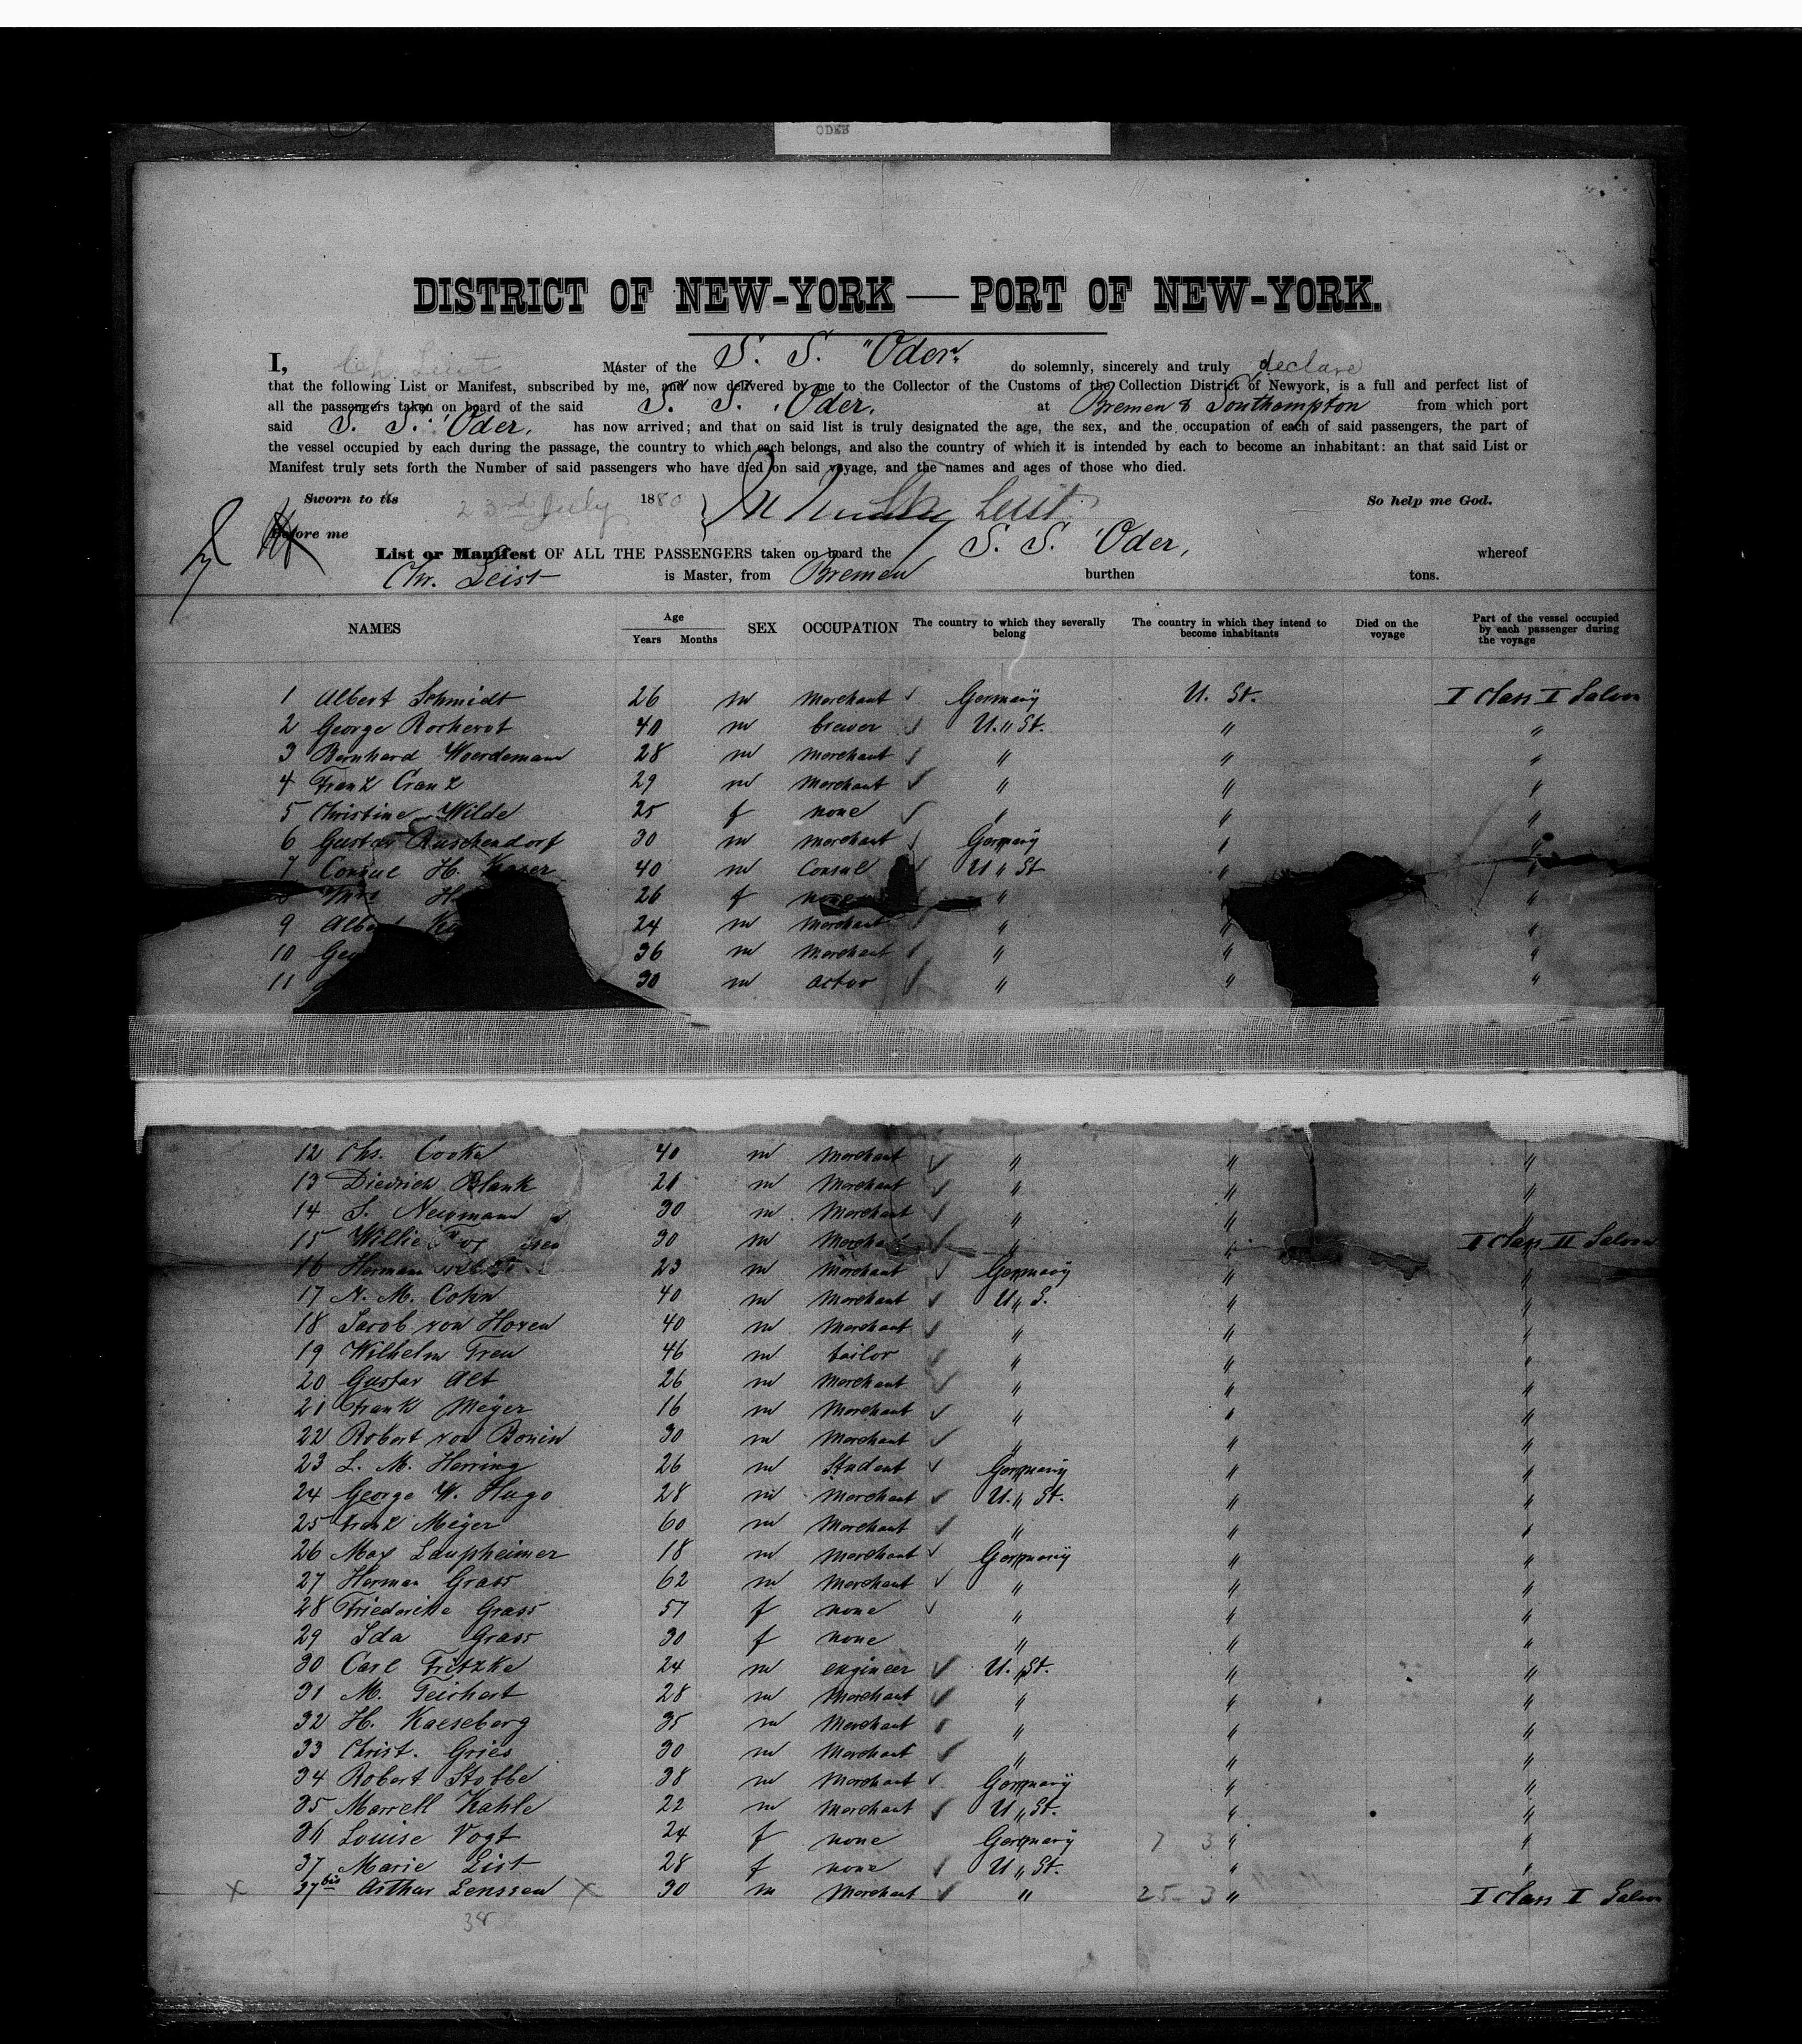 ODER
DISTRICT OF NEW-YORK — PORT OF NEW-YORK.
I, Ch. Leist Master of the S. S. "Oder" do solemnly, sincerely and truly declare
that the following List or Manifest, subscribed by me, and now delivered by me to the Collector of the Customs of the Collection District of Newyork, is a full and perfect list of
all the passengers taken on board of the said S. S. "Oder, at Bremen & Southampton from which port
said S. S. "Oder, has now arrived; and that on said list is truly designated the age, the sex, and the occupation of each of said passengers, the part of
the vessel occupied by each during the passage, the country to which each belongs, and also the country of which it is intended by each to become an inhabitant: an that said List or
Manifest truly sets forth the Number of said passengers who have died on said voyage, and the names and ages of those who died.
Sworn to tis 23rd July 1880 Leist So help me God.
Before me
List or Manifest OF ALL THE PASSENGERS taken on board the S. S. "Oder, whereof
Chr. Leist is Master, from Bremen burthen tons.
NAMES Age Years Months SEX OCCUPATION The country to which they severally belong The country in which they intend to become inhabitants Died on the voyage Part of the vessel occupied by each passenger during the voyage
1 Albert Schmidt 26 m Merchant Germany U. St. I Class I Saloon
2 George 40 m brewer U. St. " "
3 Bernhard Woerdemann 28 m Merchant " " "
4 Franz Cranz 29 m Merchant " " "
5 Christine Wilde 25 f none " " "
6 Gustav Ruschendorf 30 m Merchant Germany " "
7 Consul H. 40 m Consul U. St " "
8 Mrs H 26 f none " "
9 Albert 24 m Merchant " " "
10 36 m Merchant " " "
11 30 m actor " " "
12 Chs. Cooke 40 m Merchant " " "
13 Diedrich Blank 21 m Merchant " " "
14 S. Newmann 30 m Merchant " " "
15 Willie 30 m Merchant " " II Class II Saloon
16 Herman 23 m Merchant Germany " "
17 N. M. Cohn 40 m Merchant U. S. " "
18 Jacob von Hoven 40 m Merchant " " "
19 Wilhelm Treu 46 m tailor " " "
20 Gustav Alt 26 m Merchant " " "
21 Frank Meyer 16 m Merchant " " "
22 Robert von Bonin 30 m Merchant " " "
23 L. M. Herring 26 m Student Germany " "
24 George W. Hugo 28 m Merchant U. St. " "
25 Franz Meyer 60 m Merchant " " "
26 Max Laupheimer 18 m Merchant Germany " "
27 Herman Grass 62 m Merchant " " "
28 Friederike Grass 57 f none " " "
29 Ida Grass 30 f none " " "
30 Carl Fritzke 24 m engineer U. St. " "
31 M. Teichert 28 m Merchant " " "
32 H. Kaeseberg 35 m Merchant " " "
33 Christ. Gries 30 m Merchant " " "
34 Robert Stobbe 38 m Merchant Germany " "
35 Marrell Kahle 22 m Merchant U. St. " "
36 Louise Vogt 24 f none Germany 7 3 " "
37 Marie List 28 f none U. St. " "
X 37bis Arthur Lenssen X 30 m Merchant " 25-3 " I Class I Saloon
38